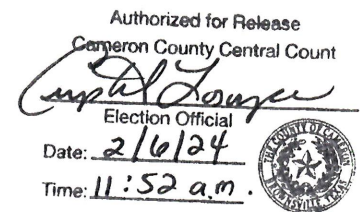 Authorized for Release
Cameron County Central Count
Election Official
Date: 2/6/24
Time: 11:52 a.m.
THE COUNTY OF CAMERON
BROWNSVILLE, TEXAS